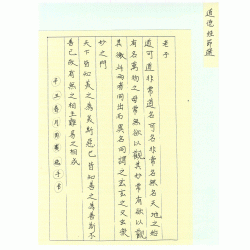 道德經節選
老子
道可道非常道名可名非常名無名天地之始
有名萬物之母常無欲以觀其妙常有欲以觀
其徼此兩者同出而異名同謂之玄玄之又玄眾
妙之門
天下皆知美之為美斯惡已皆知善之為善斯不
善已故有無之相生難易之相成
辛丑春月